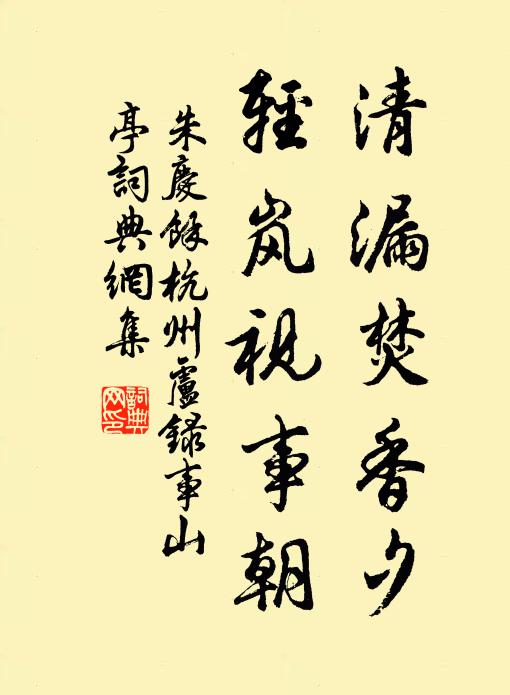 清漏焚香夕
輕岚視事朝
朱慶餘杭州盧錄事山
亭詞典網集
詞典
网印